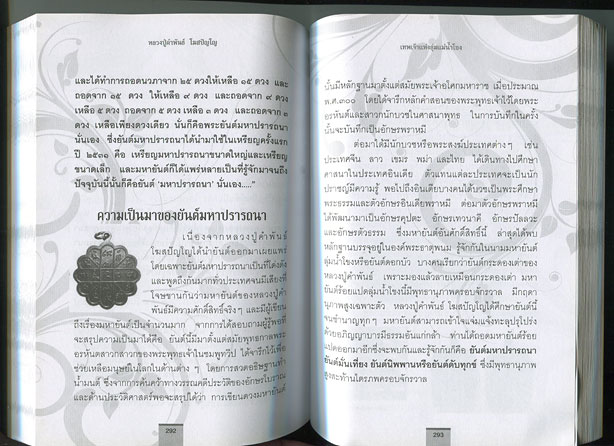 หลวงปู่คำพันธ์ โฆสปัญโญ
และได้ทำการถอดนวภาจาก ๒๕ ดวงให้เหลือ ๑๕ ดวง และ
ถอดจาก ๑๕ ดวง ให้เหลือ ๙ ดวง และถอดจาก ๙ ดวง
เหลือ ๕ ดวง ถอดจาก ๕ ดวง เหลือ ๓ ดวง และถอดจาก ๓
ดวง เหลือเพียงดวงเดียว นั่นก็คือพระยันต์มหาปรารถนา
นั่นเอง ซึ่งยันต์มหาปรารถนาได้นำมาใช้ในเหรียญครั้งแรก
ปี ๒๕๓๑ คือ เหรียญมหาปรารถนาขนาดใหญ่และเหรียญ
ขนาดเล็ก และมหายันต์ก็ได้แพร่หลายเป็นที่รู้จักมาจนถึง
ปัจจุบันนี้นั้นก็คือยันต์ 'มหาปรารถนา' นั่นเอง....."
ความเป็นมาของยันต์มหาปรารถนา
เนื่องจากหลวงปู่คำพันธ์
โฆสปัญโญได้นำยันต์ออกมาเผยแพร่
โดยเฉพาะยันต์มหาปรารถนาเป็นที่โด่งดัง
และพูดถึงกันมากทั่วประเทศจนมีเสียงที่
โจษขานกันว่ามหายันต์ของหลวงปู่คำ
พันธ์มีความศักดิ์สิทธิ์จริงๆ และมีผู้เขียน
ถึงเรื่องมหายันต์เป็นจำนวนมาก จากการได้สอบถามผู้รู้พอที่
จะสรุปความเป็นมาได้คือ ยันต์นี้มีมาตั้งแต่สมัยพุทธกาลพระ
อรหันต์สาวกสาวกของพระพุทธเจ้าในชมพูทวีป ได้จารึกไว้เพื่อ
ช่วยเหลือมนุษย์ในโลกในด้านต่าง ๆ โดยการสวดอธิษฐานทำ
น้ำมนต์ ซึ่งจากการค้นคว้าทางวรรณคดีประวัติของอักษรโบราณ
และด้านประวัติศาสตร์พอจะสรุปได้ว่า การเขียนดวงมหายันต์
292
เทพเจ้าแห่งลุ่มแม่น้ำโขง
นั้นมีหลักฐานมาตั้งแต่สมัยพระเจ้าอโศกมหาราช เมื่อประมาณ
พ.ศ.๓๐๐ โดยได้จารึกหลักคำสอนของพระพุทธเจ้าไว้โดยพระ
อรหันต์และสาวกนักบวชในศาสนาพุทธ ในการบันทึกในครั้ง
นั้นจะบันทึกเป็นอักษรพราหมี
ต่อมาได้มีนักบวชหรือพระสงฆ์ประเทศต่างๆ เช่น
ประเทศจีน ลาว เขมร พม่า และไทย ได้เดินทางไปศึกษา
ศาสนาในประเทศอินเดีย ตัวแทนแต่ละประเทศจะเป็นนัก
ปราชญ์มีความรู้ พอไปถึงอินเดียบางคนได้บวชเป็นพระศึกษา
พระธรรมและตัวอักษรอินเดียพราหมี ต่อมาตัวอักษรพราหมี
ได้พัฒนามาเป็นอักษรคุปตะ อักษรเทวนาคี อักษรปัลลวะ
และอักษรตัวธรรม ซึ่งมหายันต์อันศักดิ์สิทธิ์นี้ ล่าสุดได้พบ
หลักฐานบรรจุอยู่ในองค์พระธาตุพนม รู้จักกันในนามมหายันต์
ลุ่มน้ำโขงหรือยันต์ดอกบัว บางคนเรียกว่ายันต์กระดองเต่าของ
หลวงปู่คำพันธ์ เพราะมองแล้วลายเหมือนกระดองเต่า มหา
ยันต์ร้อยแปดลุ่มน้ำโขงนี้มีพุทธานุภาพครอบจักรวาล มีกฤดา
นุภาพสูงเฉพาะตัว หลวงปู่คำพันธ์ โฆสปัญโญได้ศึกษายันต์นี้
จนชำนาญทุกๆ มหายันต์สามารถเข้าใจแจ่มแจ้งทะลุปรุโปร่ง
ด้วยอภิญญาบารมีธรรมอันแก่กล้า ท่านได้ถอดมหายันต์ร้อย
แปดออกมาอีกซึ่งจะพบกันและรู้จักกันก็คือ ยันต์มหาปรารถนา
ยันต์มั่นเที่ยง ยันต์นิพพานหรือยันต์ดับทุกข์ ซึ่งมีพุทธานุภาพ
สูงสะท้านไตรภพครอบจักรวาล
293